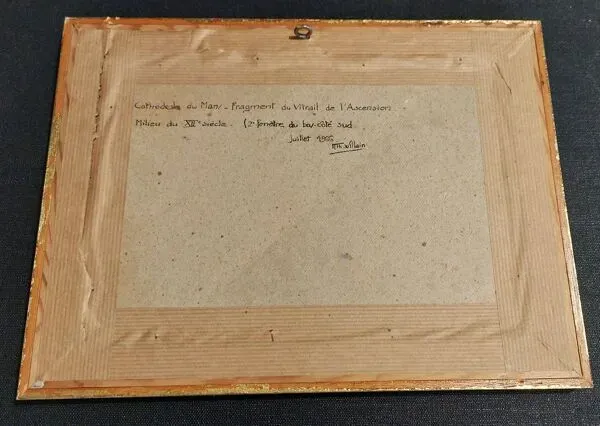 Cathédrale du Mans - Fragment du Vitrail de l'Ascension.
Milieu du XIIe siècle. (2e fenêtre du bas-côté sud.
Juillet
Villain